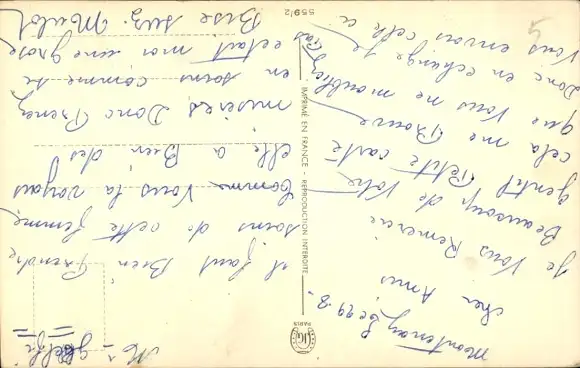 Montenay le 29-8-
Cher Amis
je Vous Remercie
Beaucoup de Votre
gentil Petite carte
cela me Prouve
que Vous ne m'oubliez Pas
Donc en echange je
Vous envois celle ci
il faut Bien Prendre
soins de cette femme
comme Vous la voyais
elle a Bien des
miseres Donc Prenez
en soins comme si
cetait moi une grose
Bise
559/2
IMPRIMÉ EN FRANCE - REPRODUCTION INTERDITE
PARIS